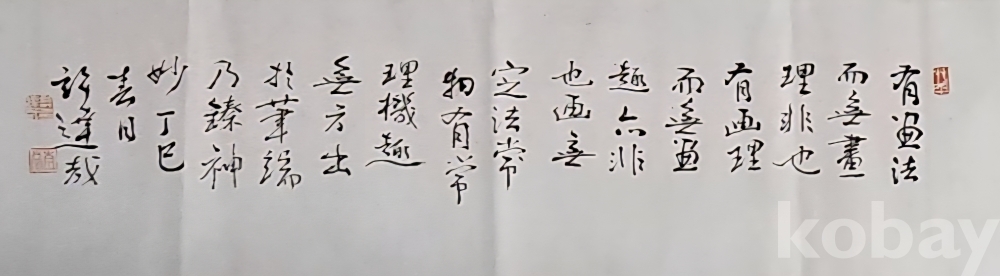 有画法
而無畫
理非也
有画理
而無画
趣亦非
也画無
定法常
物有常
理機趣
無方出
於筆端
乃臻神
妙 丁巳
春日
許達哉
kobay